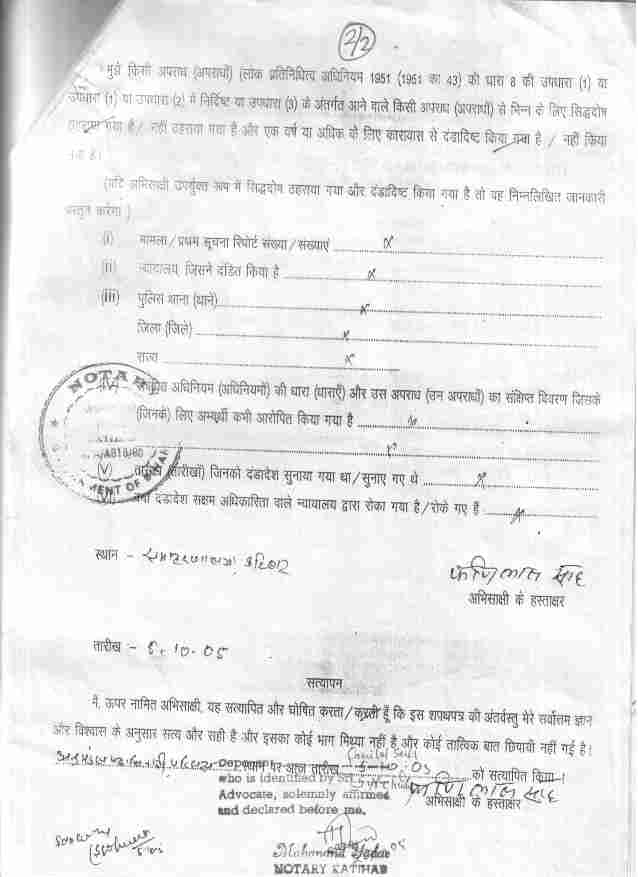 2/2
मुझे किसी अपराध (अपराधों) (लोक प्रतिनिधित्व अधिनियम 1951 (1951 का 43) की धारा 8 की उपधारा (1) या
उपधारा (1) या उपधारा (2) में निर्दिष्ट या उपधारा (3) के अंतर्गत आने वाले किसी अपराध (अपराधों) से भिन्न के लिए सिद्धदोष
ठहराया गया है / नहीं ठहराया गया है और एक वर्ष या अधिक के लिए कारावास से दंडादिष्ट किया गया है / नहीं किया
गया है।
(यदि अभिसाक्षी उपर्युक्त रूप में सिद्धदोष ठहराया गया और दंडादिष्ट किया गया है तो वह निम्नलिखित जानकारी
प्रस्तुत करेगा)
(i) मामला/प्रथम सूचना रिपोर्ट संख्या/संख्याएं x
(ii) न्यायालय, जिसने दंडित किया है x
(iii) पुलिस थाना (थाने) x
जिला (जिले) x
राज्य x
अधिनियम (अधिनियमों) की धारा (धाराएँ) और उस अपराध (उन अपराधों) का संक्षिप्त विवरण जिसके
(जिनके) लिए अभ्यर्थी कभी आरोपित किया गया है x
x
(V) तारीख (तारीखें) जिनको दंडादेश सुनाया गया था/सुनाए गए थे x
दंडादेश सक्षम अधिकारिता वाले न्यायालय द्वारा रोका गया है/रोके गए हैं x
NOTAR
AB18/80
MENT OF BIHAR
स्थान :-
अभिसाक्षी के हस्ताक्षर
तारीख :- 5.10.05
सत्यापन
मैं, ऊपर नामित अभिसाक्षी, यह सत्यापित और घोषित करता/करती हूँ कि इस शपथपत्र की अंतर्वस्तु मेरे सर्वोत्तम ज्ञान
और विश्वास के अनुसार सत्य और सही है और इसका कोई भाग मिथ्या नहीं है और कोई तात्विक बात छिपायी नहीं गई है।
पर आज तारीख 5-10-05 को सत्यापित किया।
Deponent
who is identified by Sri
Advocate, solemnly affirmed
and declared before me.
अभिसाक्षी के हस्ताक्षर
Mahanand Yadav
NOTARY KATIHAR